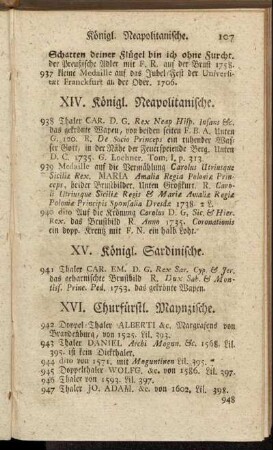 Königl. Neapolitanische. 107
Schatten deiner Flügel bin ich ohne Furcht.
der Preußische Adler mit F. R. auf der Brust 1758.
937 kleine Medaille auf das Jubel-Fest der Universi-
tät Franckfurt an der Oder. 1706.
XIV. Königl. Neapolitanische.
938 Thaler CAR. D. G. Rex Neap Hisp. Infans &c.
das gekrönte Wapen, von beiden seiten F. B. A. Unten
G. 120. R. De Socio Princeps ein ruhender Was-
ser Gott, in der Nähe der Feuerspeiende Berg. Unten
D. C. 1735. G. Lochner. Tom. I. p. 313.
939 Medaille auf die Vermählung Carolus Utriusque
Siciliæ Rex. MARIA Amalia Regia Poloniæ Prin-
ceps, beider Brustbilder. Unten Großkurt. R. Caro-
lo Utriusque Siciliæ Regis & Mariæ Amaliæ Regia
Poloniæ Principis Sponsalia Dresdæ 1738 2 L.
940 dito Auf die Krönung Carolus D. G. Sic. & Hier.
Rex. das Brustbild R. Anno 1735. Coronationis
ein dopp. Kreutz mit F. N. ein halb Loht.
XV. Königl. Sardinische.
941 Thaler CAR. EM. D. G. Rex Sar. Cyp & Jer.
das geharnischte Brustbild R. Dux Sab. & Mon-
tisf. Princ. Ped. 1753. das gekrönte Wapen.
XVI. Churfürstl. Maynzische.
942 Doppel-Thaler ALBERTI &c. Margrafens von
Brandenburg, von 1525. Lil. 393.
943 Thaler DANIEL Archi Mogun. &c. 1568. Lil.
395. ist kein Dickthaler.
944 dito von 1571. mit Moguntinen Lil. 395.
945 Doppelthaler WOLFG. &c. von 1586. Lil. 397.
946 Thaler von 1593. Lil. 397.
947 Thaler JO. ADAM. &c. von 1602, Lil. 398.
948